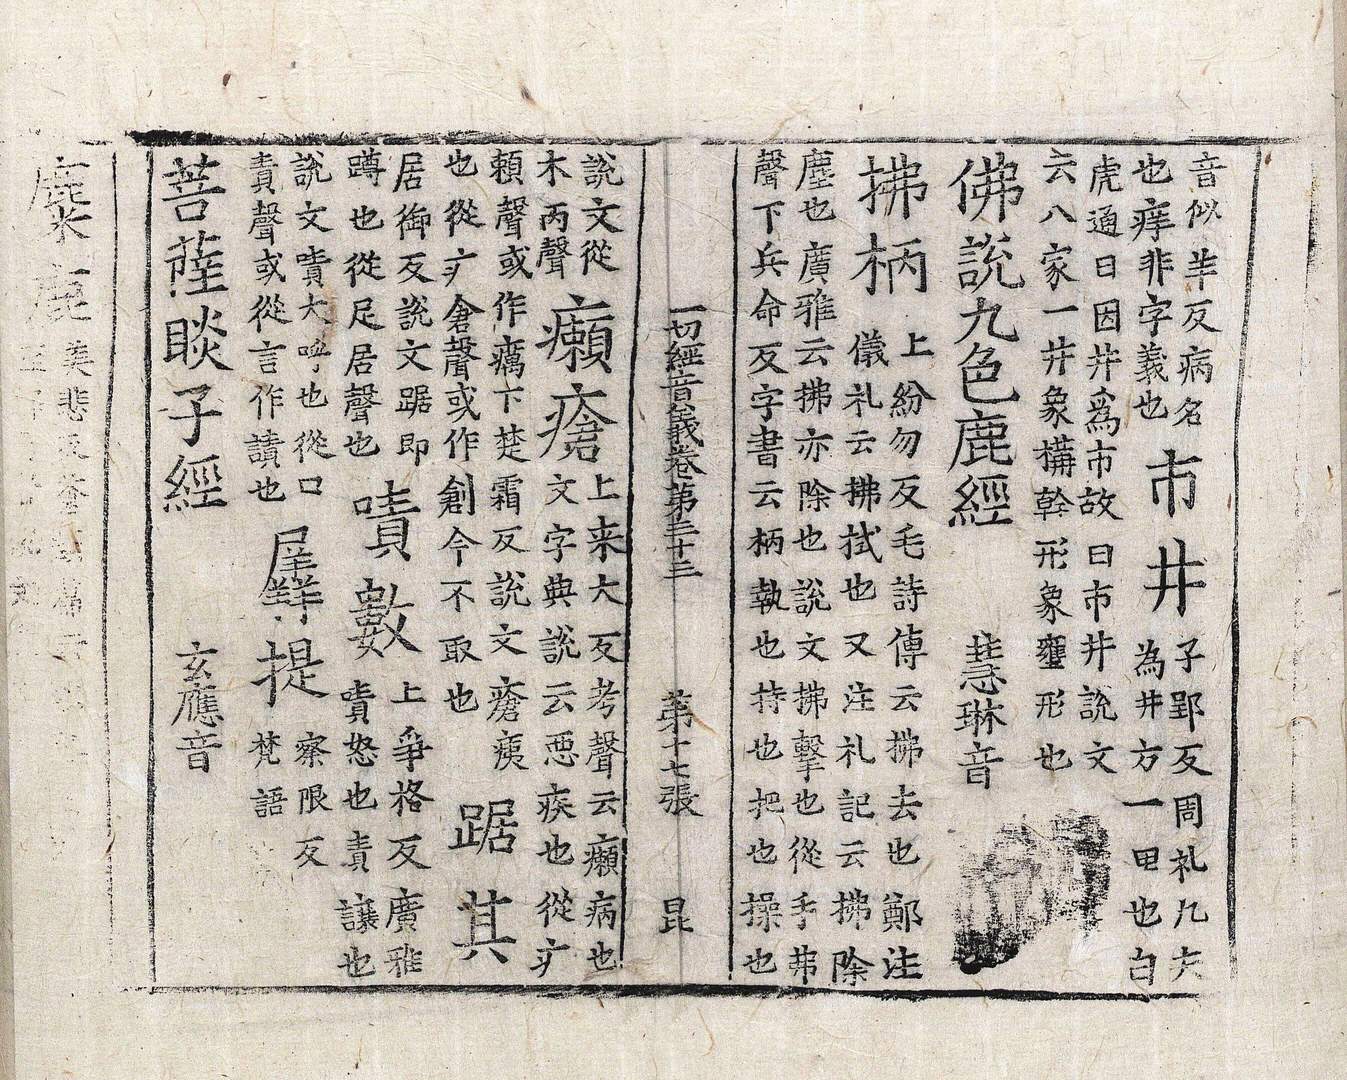 音似羊反病名
也痒非字義也
市井
子郢反周礼九夫
為井方一里也白
虎通曰因井爲市故曰市井說文
云八家一井象構幹形象罋形也
佛說九色鹿經 慧琳音
拂柄
上紛勿反毛詩傳云拂去也鄭注
儀礼云拂拭也又注礼記云拂除
塵也廣雅云拂亦除也說文拂擊也從手弗
聲下兵命反字書云柄執也持也把也操也
一切經音義卷第三十三 第十七張 昆
說文從
木丙聲
癩瘡
上来大反考聲云癩病也
文字典說云惡疾也從疒
頼聲或作癘下楚霜反說文瘡痍
也從疒倉聲或作創今不取也
踞其
居御反說文踞即
蹲也從足居聲也
嘖數
上爭格反廣雅
嘖怒也責讓也
說文嘖大呼也從口
責聲或從言作讀也
羼提
察限反
梵語
菩薩睒子經 玄應音
麋鹿
美悲反